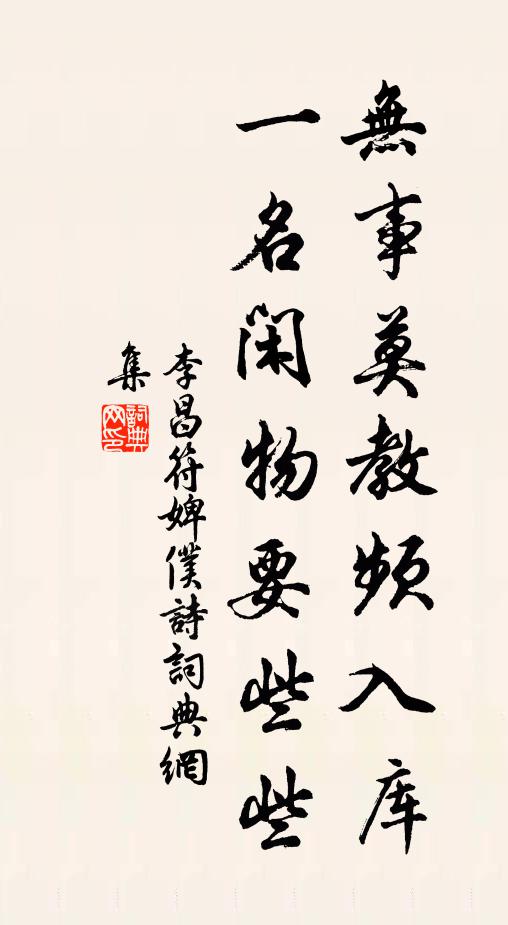 無事莫教頻入库
一名閑物要些些
李昌符婢僕詩詞典網
集
詞典网印